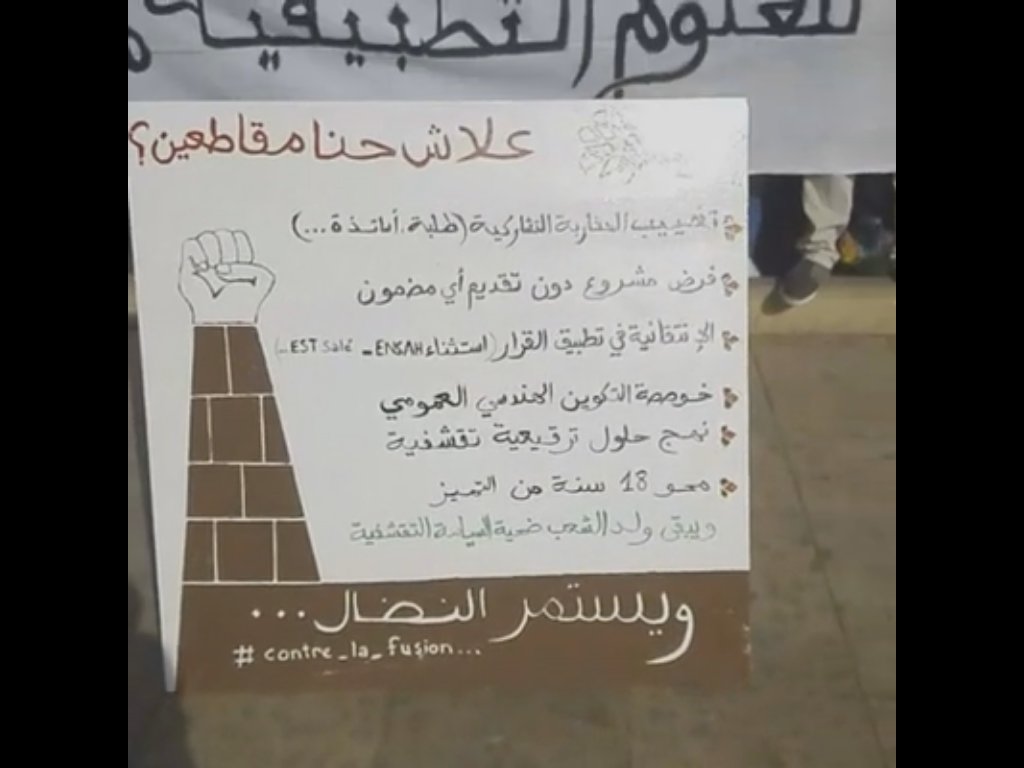 للعلوم التطبيقية
علاش حنا مقاطعين؟
تغييب المقاربة التشاركية (طلبة، أساتذة...)
فرض مشروع دون تقديم أي مضمون
الإنتقائية في تطبيق القرار (استثناء ENSAH - EST Salé...)
خوصصة التكوين الهندسي العمومي
نهج حلول ترقيعية تقشفية
محو 18 سنة من التميز
ويبقى ولد الشعب ضحية السياسة التقشفية
ويستمر النضال...
# contre_la_fusion...